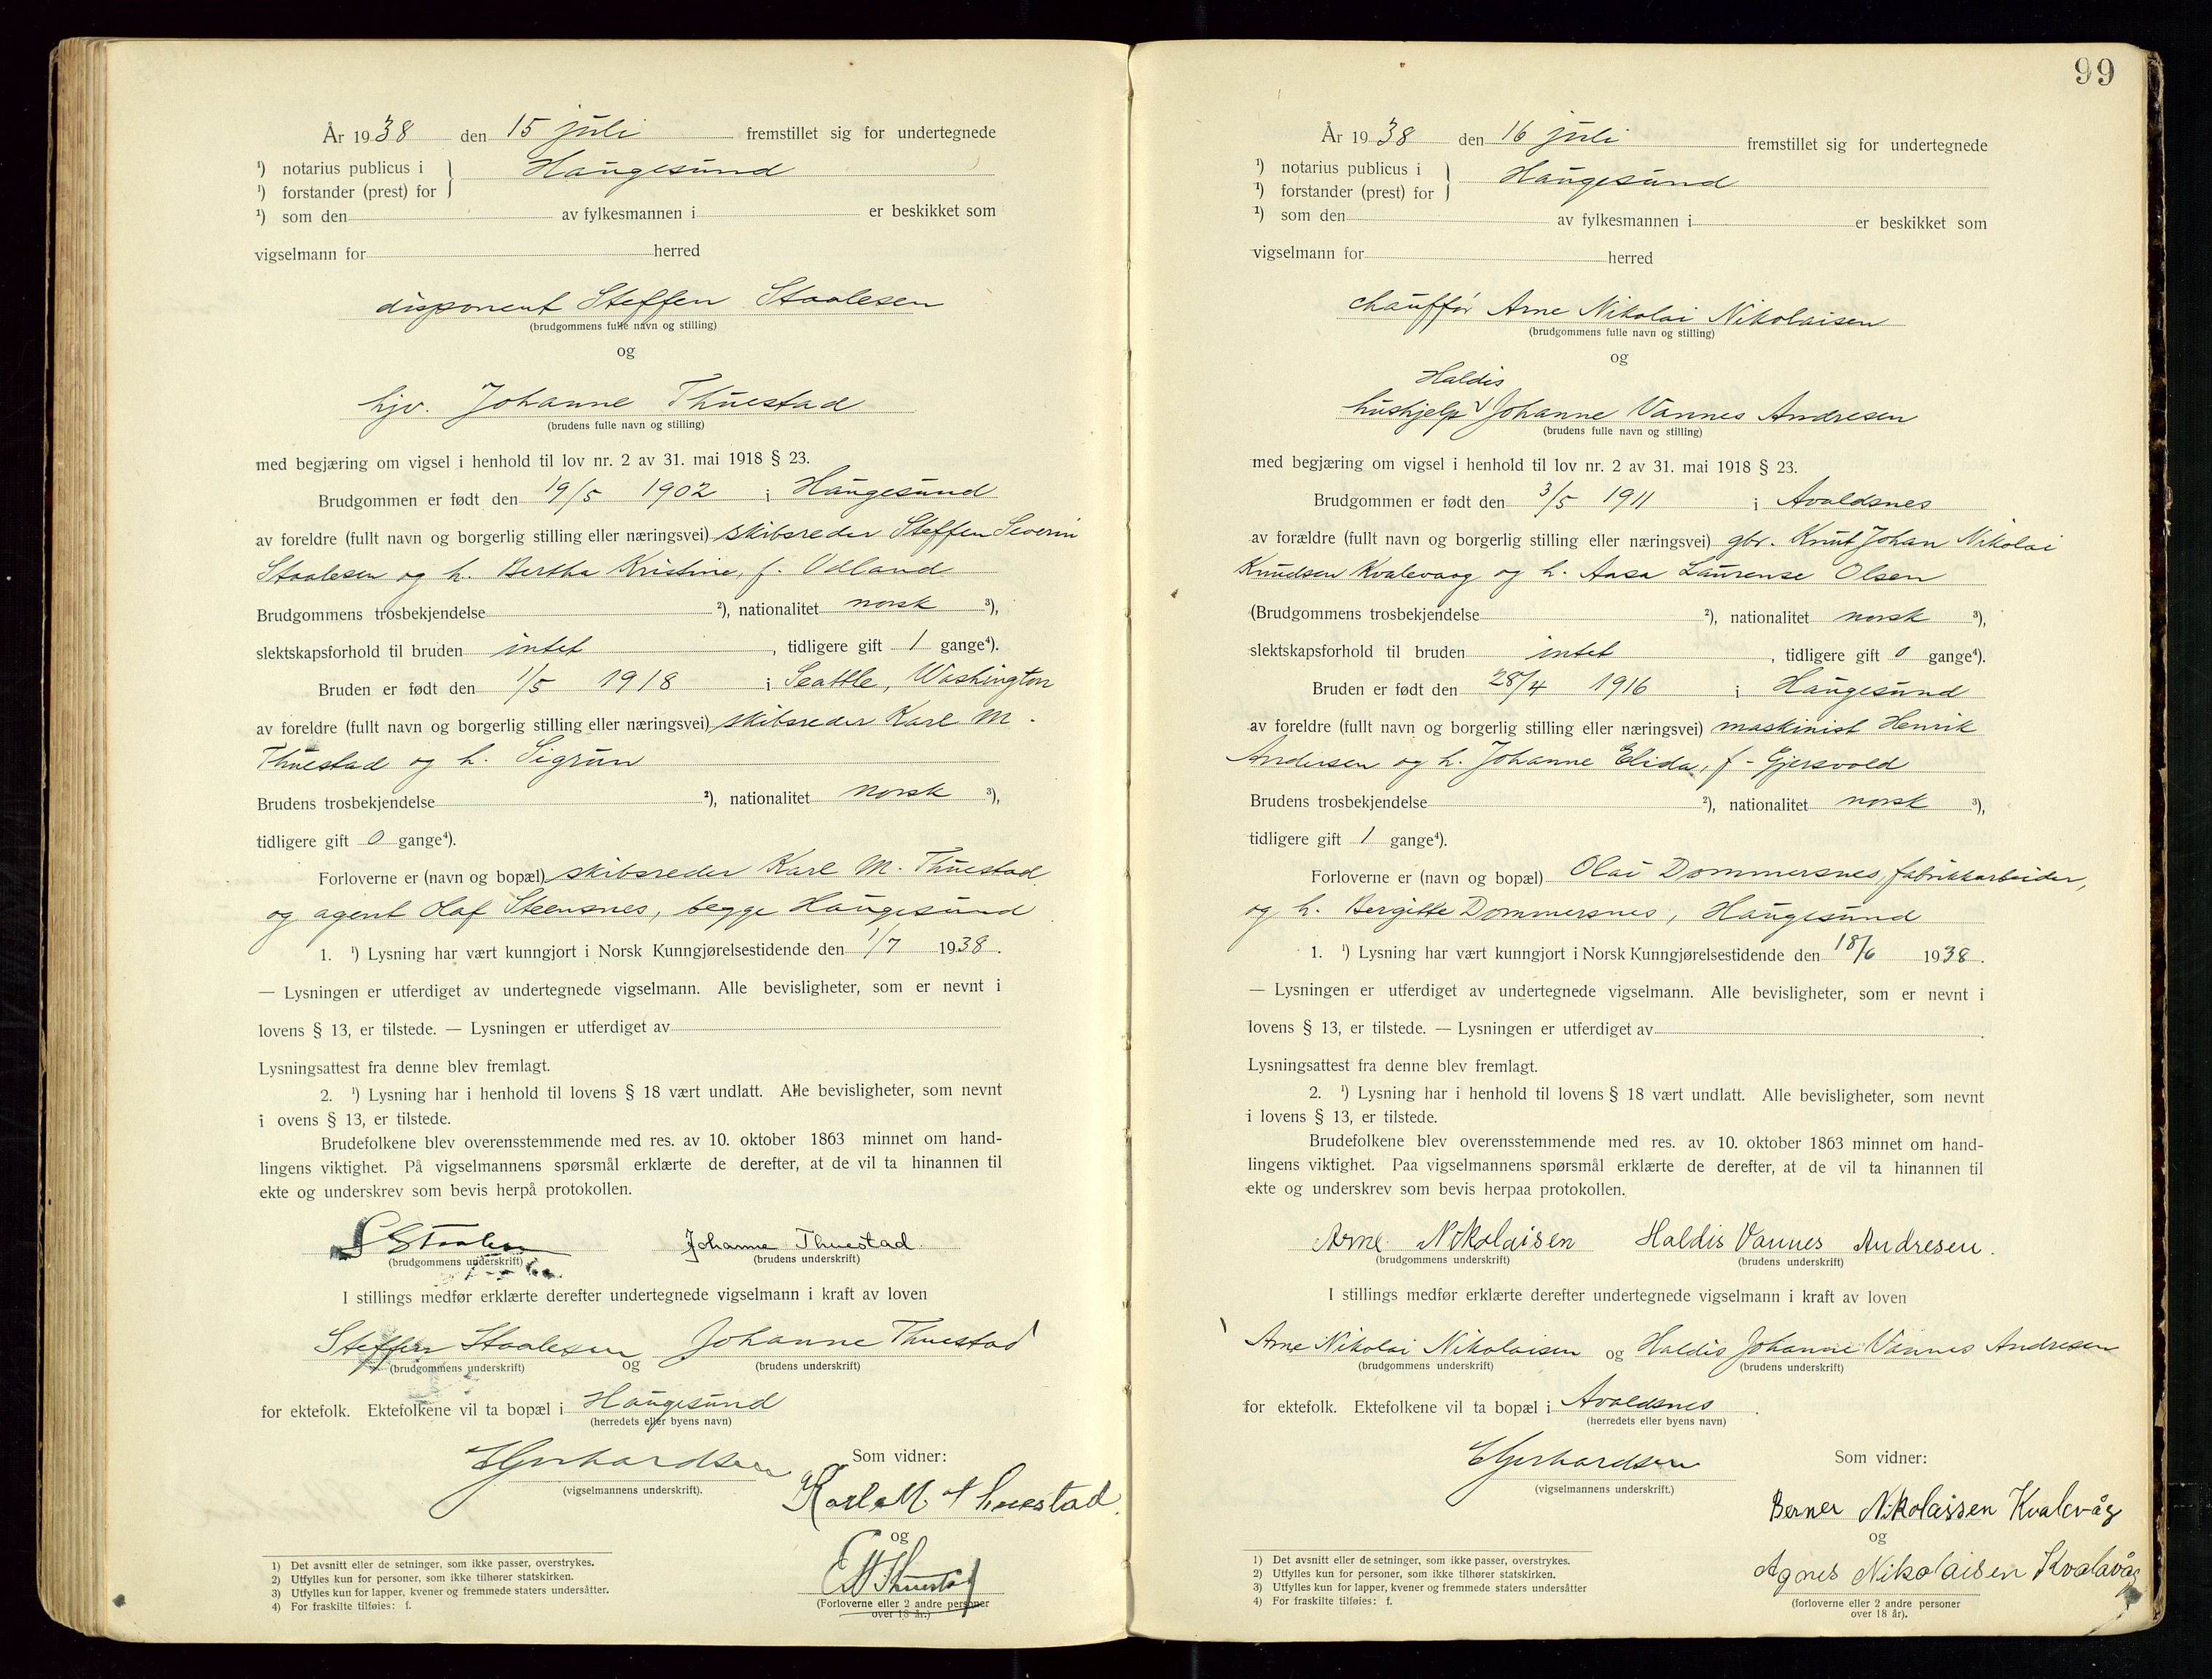 År 1938 den 15 juli fremstillet sig for undertegnede
¹) notarius publicus i } Haugesund
¹) forstander (prest) for
¹) som den av fylkesmannen i er beskikket som
vigselmann for herred
disponent Steffen Staalesen
(brudgommens fulle navn og stilling)
og
hjv. Johanne Thuestad
(brudens fulle navn og stilling)
med begjæring om vigsel i henhold til lov nr. 2 av 31. mai 1918 § 23.
Brudgommen er født den 19/5 1902 i Haugesund
av foreldre (fullt navn og borgerlig stilling eller næringsvei) skibsreder Steffen Severin
Staalesen og h. Bertha Kristine, f. Udland
Brudgommens trosbekjendelse ²), nationalitet norsk ³),
slektskapsforhold til bruden intet, tidligere gift 1 gange⁴).
Bruden er født den 1/5 1918 i Seattle, Washington
av foreldre (fullt navn og borgerlig stilling eller næringsvei) skibsreder Karl M.
Thuestad og h. Sigrun
Brudens trosbekjendelse ²), nationalitet norsk ³),
tidligere gift 0 gange⁴).
Forloverne er (navn og bopæl) skibsreder Karl M. Thuestad
og agent Olaf Steensnes, begge Haugesund.
1. ¹) Lysning har vært kunngjort i Norsk Kunngjørelsestidende den 1/7 1938.
— Lysningen er utferdiget av undertegnede vigselmann. Alle bevisligheter, som er nevnt i
lovens § 13, er tilstede. — Lysningen er utferdiget av
Lysningsattest fra denne blev fremlagt.
2. ¹) Lysning har i henhold til lovens § 18 vært undlatt. Alle bevisligheter, som nevnt
i ovens § 13, er tilstede.
Brudefolkene blev overensstemmende med res. av 10. oktober 1863 minnet om hand-
lingens viktighet. På vigselmannens spørsmål erklærte de derefter, at de vil ta hinannen til
ekte og underskrev som bevis herpå protokollen.
S Staalesen Johanne Thuestad
(brudgommens underskrift) (brudens underskrift)
I stillings medfør erklærte derefter undertegnede vigselmann i kraft av loven
Steffen Staalesen og Johanne Thuestad
(brudgommens underskrift) (brudens underskrift)
for ektefolk. Ektefolkene vil ta bopæl i Haugesund
(herredets eller byens navn)
EGerhardsen Som vidner:
(vigselmannens underskrift).
Karl M Thuestad
og
Thuestad
(Forloverne eller 2 andre personer
over 18 år.)
1) Det avsnitt eller de setninger, som ikke passer, overstrykes.
2) Utfylles kun for personer, som ikke tilhører statskirken.
3) Utfylles kun for lapper, kvener og fremmede staters undersåtter.
4) For fraskilte tilføies: f.
99
År 1938 den 16 juli fremstillet sig for undertegnede
¹) notarius publicus i } Haugesund
¹) forstander (prest) for
¹) som den av fylkesmannen i er beskikket som
vigselmann for herred
chauffør Arne Nikolai Nikolaisen
(brudgommens fulle navn og stilling)
og
Haldis
hushjelp √ Johanne Vannes Andresen
(brudens fulle navn og stilling)
med begjæring om vigsel i henhold til lov nr. 2 av 31. mai 1918 § 23.
Brudgommen er født den 3/5 1911 i Avaldsnes
av forældre (fullt navn og borgerlig stilling eller næringsvei) gbr. Knut Johan Nikolai
Knudsen Kvalevaag og h. Aasa Laurense Olsen
(Brudgommens trosbekjendelse ²), nationalitet norsk ³),
slektskapsforhold til bruden intet, tidligere gift 0 gange⁴).
Bruden er født den 28/4 1916 i Haugesund
av foreldre (fullt navn og borgerlig stilling eller næringsvei) maskinist Henrik
Andersen og h. Johanne Elida, f. Gjersvold
Brudens trosbekjendelse ²), nationalitet norsk ³),
tidligere gift 1 gange⁴).
Forloverne er (navn og bopæl) Olai Dommersnes, fabrikkarbeider,
og h. Bergitte Dommersnes, Haugesund
1. ¹) Lysning har vært kunngjort i Norsk Kunngjørelsestidende den 18/6 1938.
— Lysningen er utferdiget av undertegnede vigselmann. Alle bevisligheter, som er nevnt i
lovens § 13, er tilstede. — Lysningen er utferdiget av
Lysningsattest fra denne blev fremlagt.
2. ¹) Lysning har i henhold til lovens § 18 vært undlatt. Alle bevisligheter, som nevnt
i lovens § 13, er tilstede.
Brudefolkene blev overensstemmende med res. av 10. oktober 1863 minnet om hand-
lingens viktighet. Paa vigselmannens spørsmål erklærte de derefter, at de vil ta hinannen til
ekte og underskrev som bevis herpaa protokollen.
Arne Nikolaisen Haldis Vannes Andresen.
(brudgommens underskrift) (brudens underskrift)
I stillings medfør erklærte derefter undertegnede vigselmann i kraft av loven
Arne Nikolai Nikolaisen og Haldis Johanne Vannes Andresen
(brudgommens underskrift) (brudens underskrift)
for ektefolk. Ektefolkene vil ta bopæl i Avaldsnes.
(herredets eller byens navn)
EGerhardsen Som vidner:
(vigselmannens underskrift.)
Berner Nikolaisen Kvalevåg
og
Agnes Nikolaisen Kvalavåg
(forloverne eller 2 andre personer
over 18 år).
1) Det avsnitt eller de setninger, som ikke passer, overstrykes.
2) Utfylles kun for personer, som ikke tilhører statskirken.
3) Utfylles kun for lapper, kvener og fremmede staters undersåtter
4) For fraskilte tilføies: f.